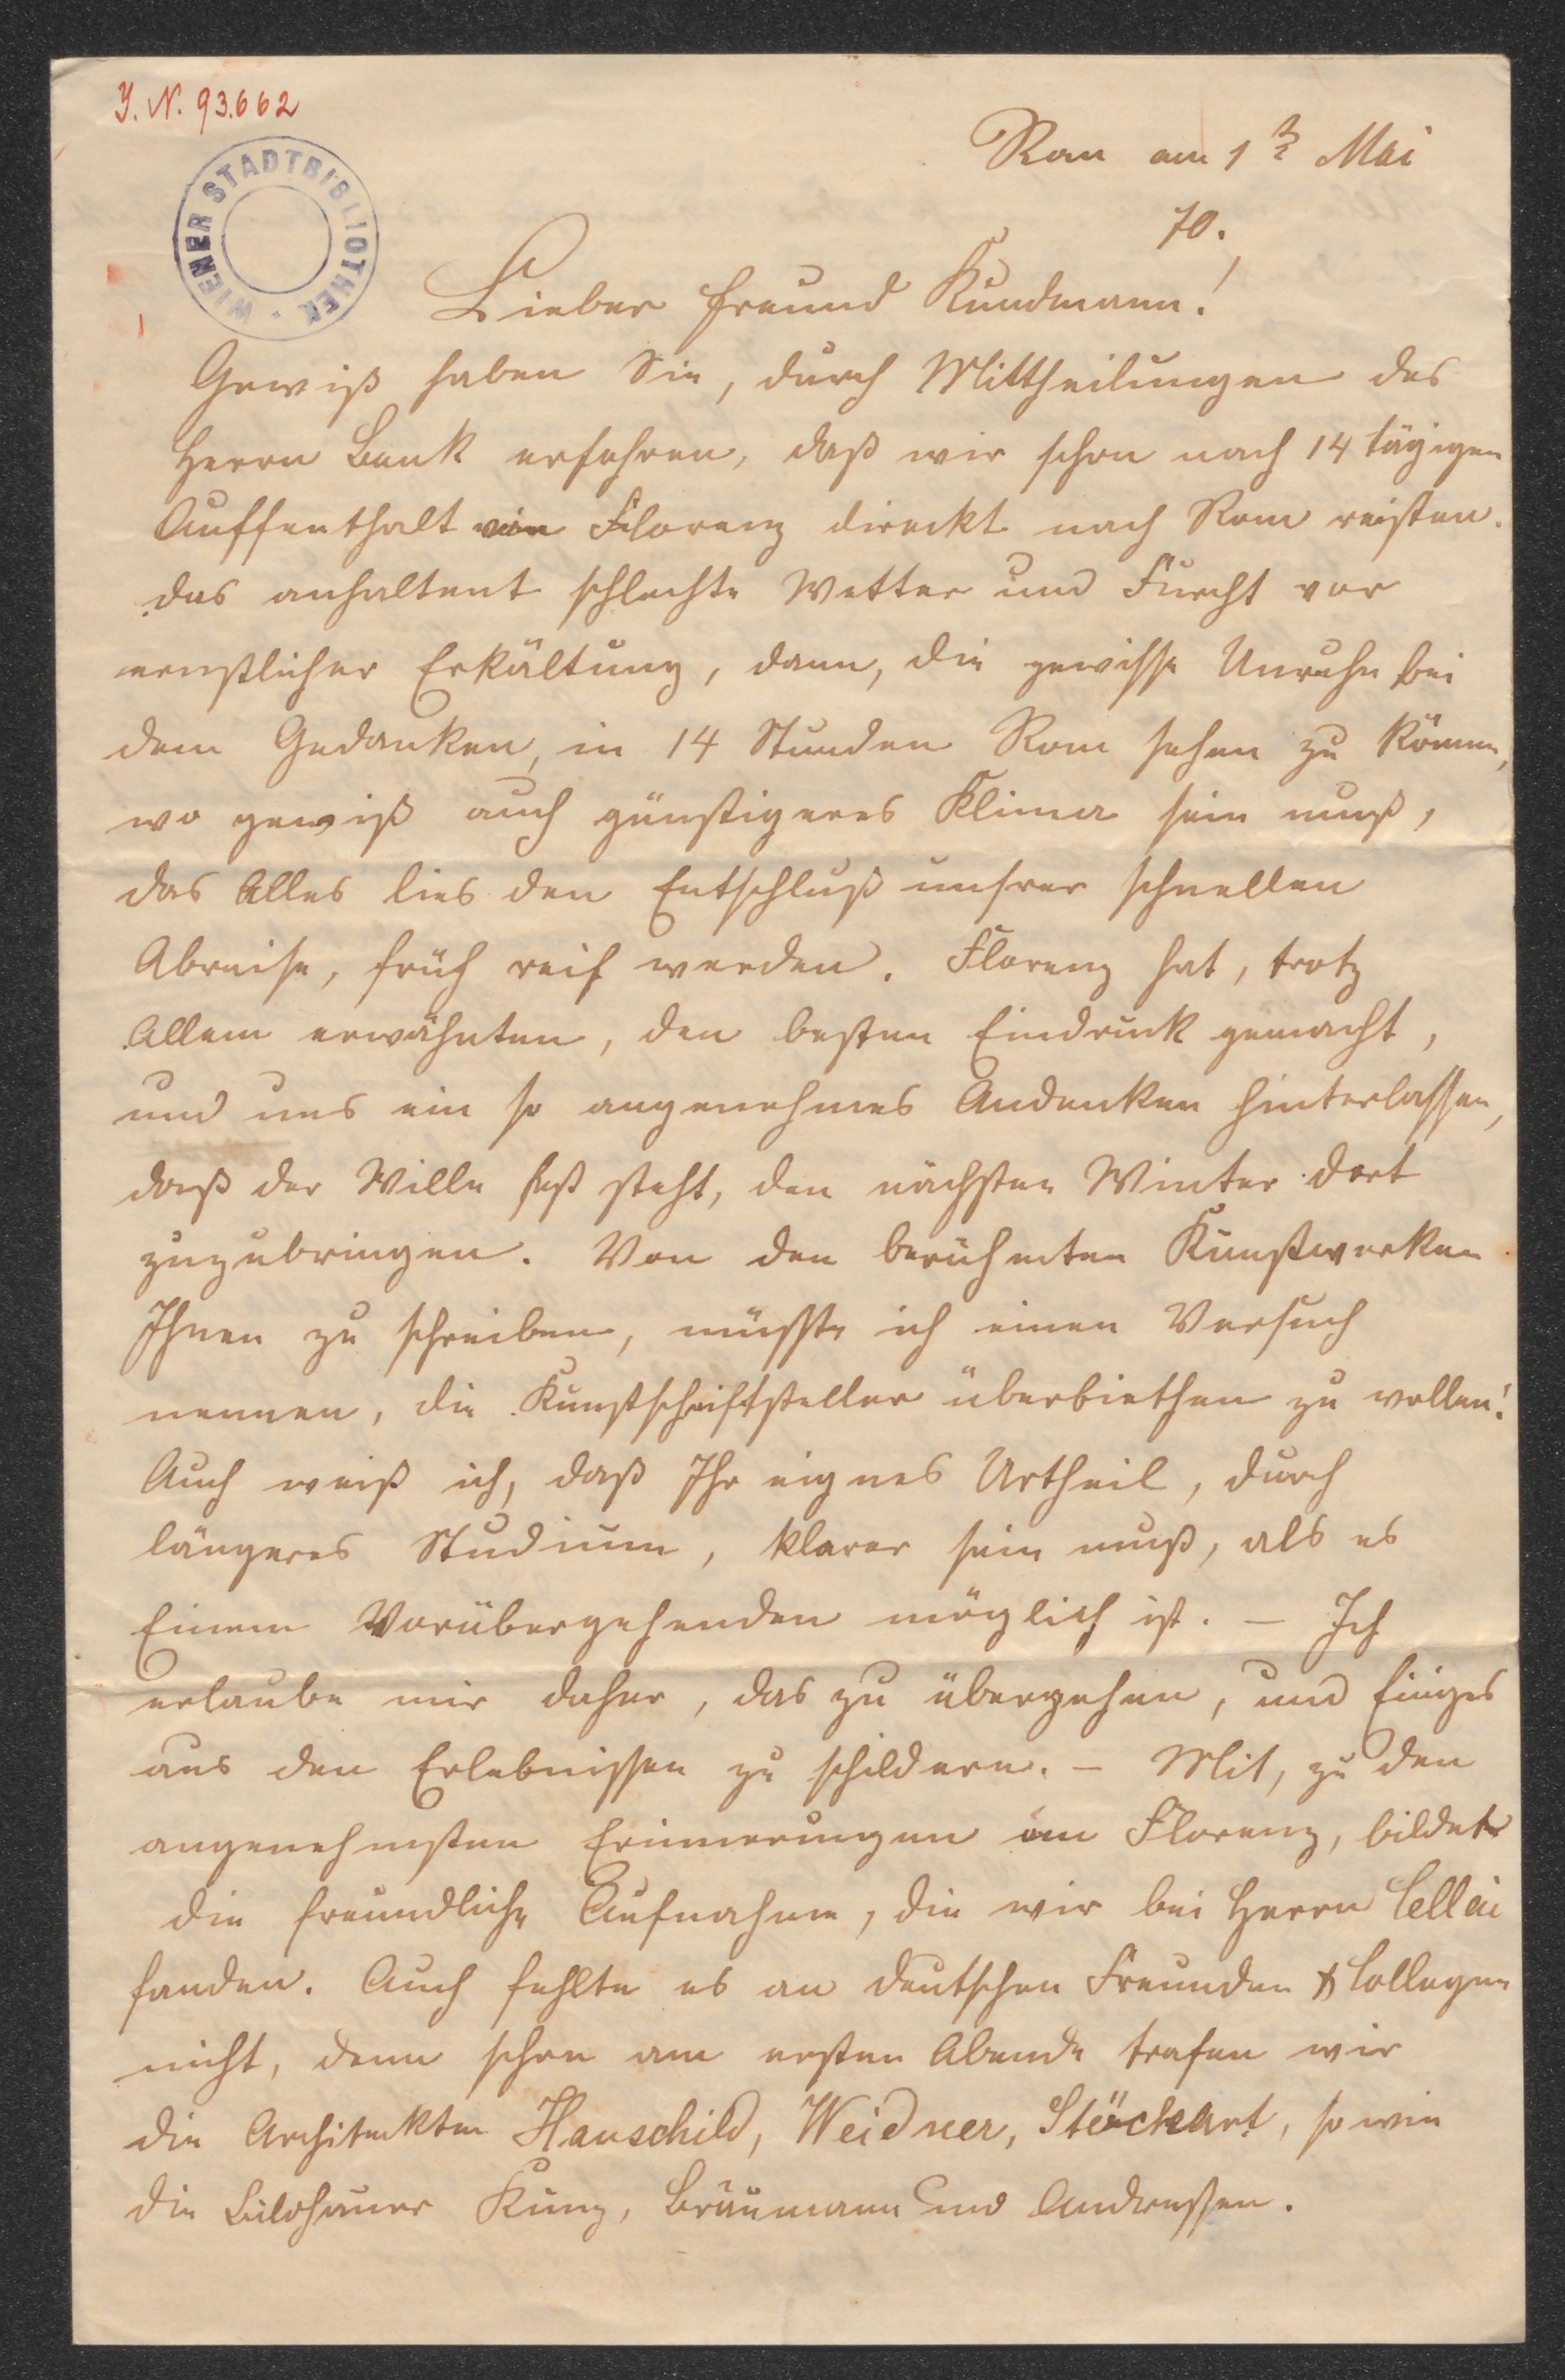 J. N. 93.662
WIENER STADTBIBLIOTHEK
Rom am 1 Mai
70.
Lieber Freund Kundmann!
Gewiß haben Sie, durch Mittheilungen des
Herrn Bank erfahren, daß wir schon nach 14 tägigen
Auffenthalt in Florenz direckt nach Rom reisten.
das anhaltent schlechte Wetter und Furcht vor
ernstlicher Erkältung, dann, die gewisse Unruhe bei
dem Gedanken, in 14 Stunden Rom sehen zu können,
wo gewiß auch günstigeres Klima sein muß,
das Alles lies den Entschluß unsrer schnellen
Abreise, früh reif werden. Florenz hat, trotz
Allem erwähnten, den besten Eindruck gemacht,
und uns ein so angenehmes Andenken hinterlassen,
daß der Wille fest steht, den nächsten Winter dort
zuzubringen. Von den berühmten Kunstwerken
Ihnen zu schreiben, müsste ich einen Versuch
nennen, die Kunstschriftsteller überbiethen zu wollen!
Auch weiß ich, daß Ihr eignes Urtheil, durch
längeres Studium, klarer sein muß, als es
Einem Vorübergehenden möglich ist. – Ich
erlaube mir daher, das zu übergehen, und Einiges
aus den Erlebnissen zu schildern. – Mit, zu den
angenehmsten Erinnerungen an Florenz, bildet
die freundliche Aufnahme, die wir bei Herrn Cellai
fanden. Auch fehlte es an deutschen Freunden & Collegen
nicht, denn schon am ersten Abende trafen wir
die Architekten Hauschild, Weidner, Stöckart, so wie
die Bildhauer Kunz, Bräumann und Andressen.